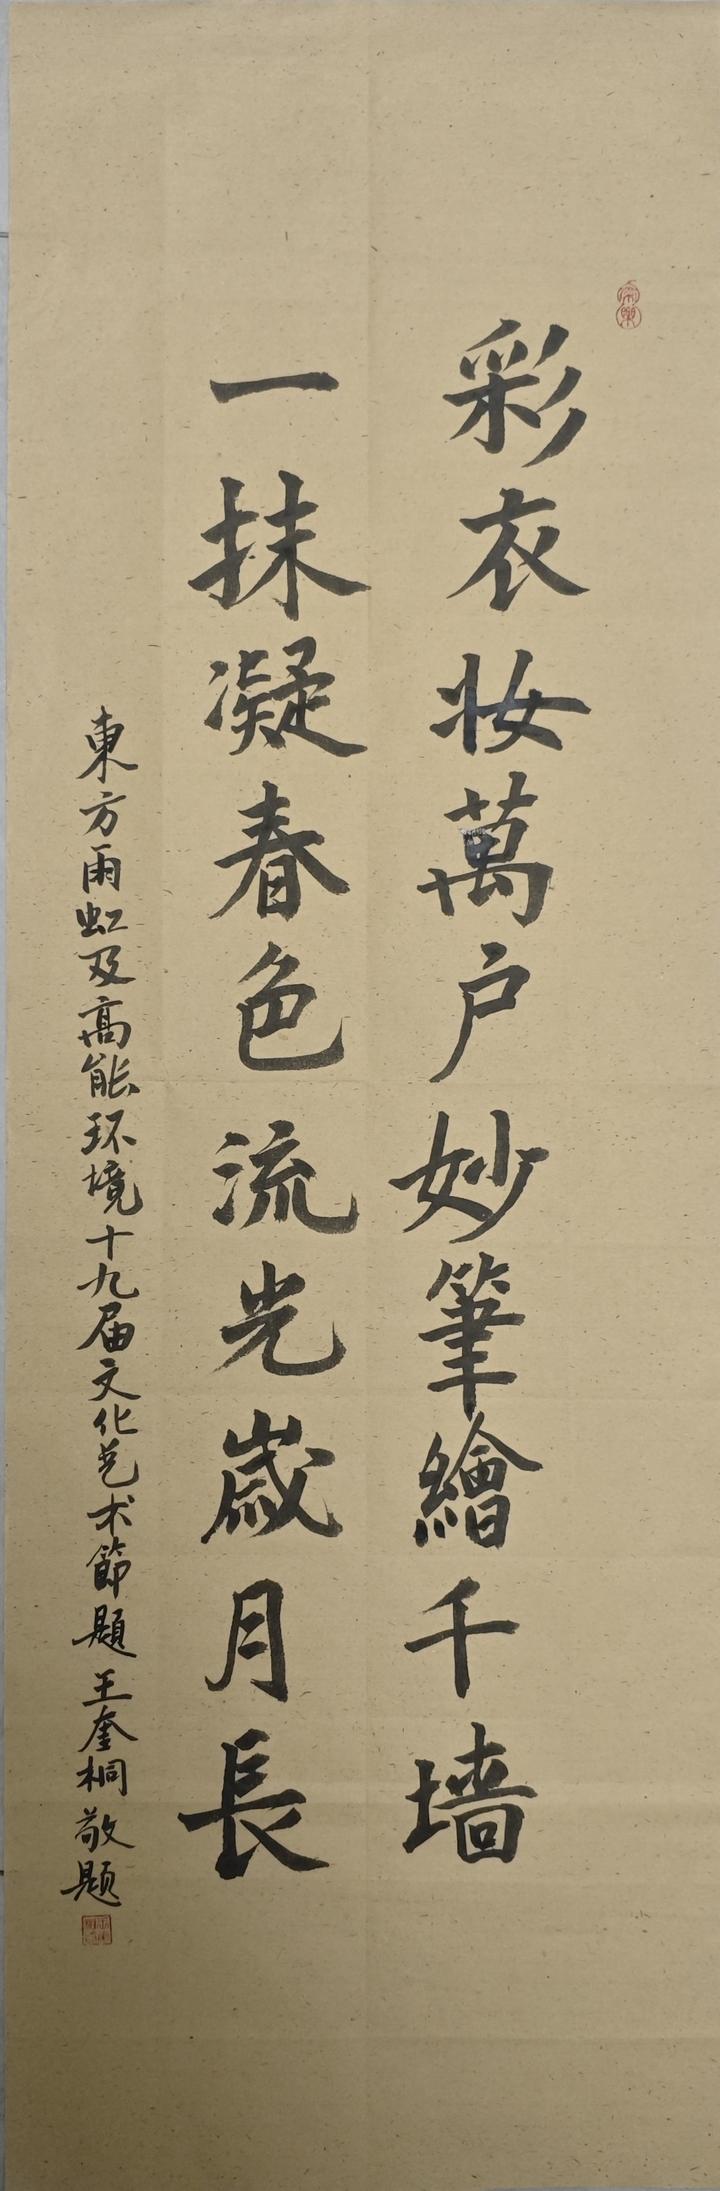 彩衣妆萬户妙筆繪千墙
一抹凝春色流光嵗月長
東方雨虹及高能环境十九届文化艺术節題王奎桐敬题